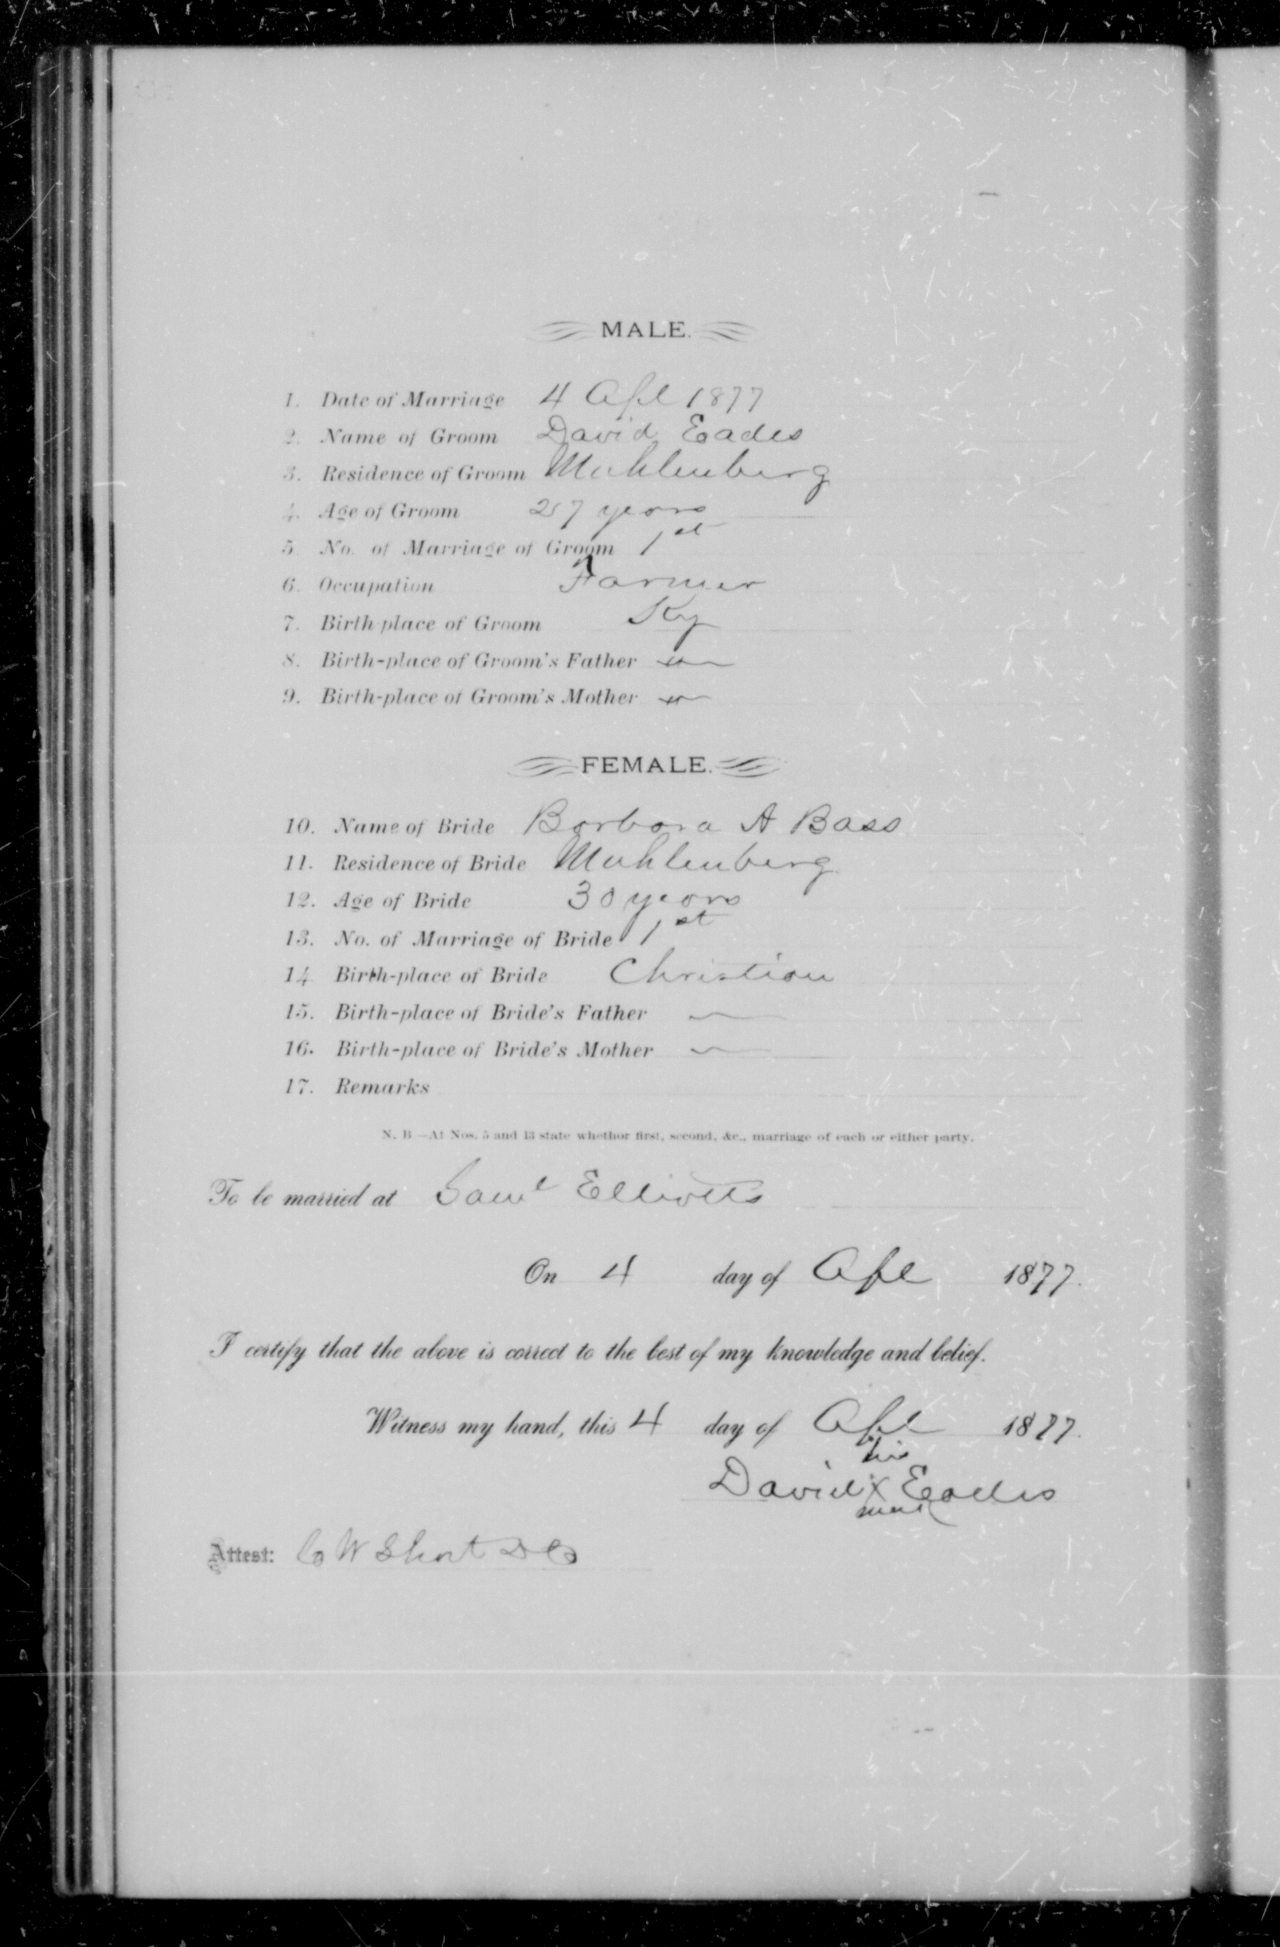 MALE.
1. Date of Marriage 4 Apl 1877
2. Name of Groom David Eades
3. Residence of Groom Muhlenberg
4. Age of Groom 27 years
5. No. of Marriage of Groom 1st
6. Occupation Farmer
7. Birth-place of Groom Ky
8. Birth-place of Groom's Father "
9. Birth-place of Groom's Mother "
FEMALE.
10. Name of Bride Barbara A Bass
11. Residence of Bride Muhlenberg
12. Age of Bride 30 years
13. No. of Marriage of Bride 1st
14. Birth-place of Bride Christian
15. Birth-place of Bride's Father —
16. Birth-place of Bride's Mother —
17. Remarks
N. B.—At Nos. 5 and 13 state whethor first, second, &c., marriage of each or either party.
To be married at Saml Elliotts
On 4 day of Apl 1877.
I certify that the above is correct to the best of my knowledge and belief.
Witness my hand, this 4 day of Apl 1877.
his
David X Eades
mark
Attest: C W Short DC